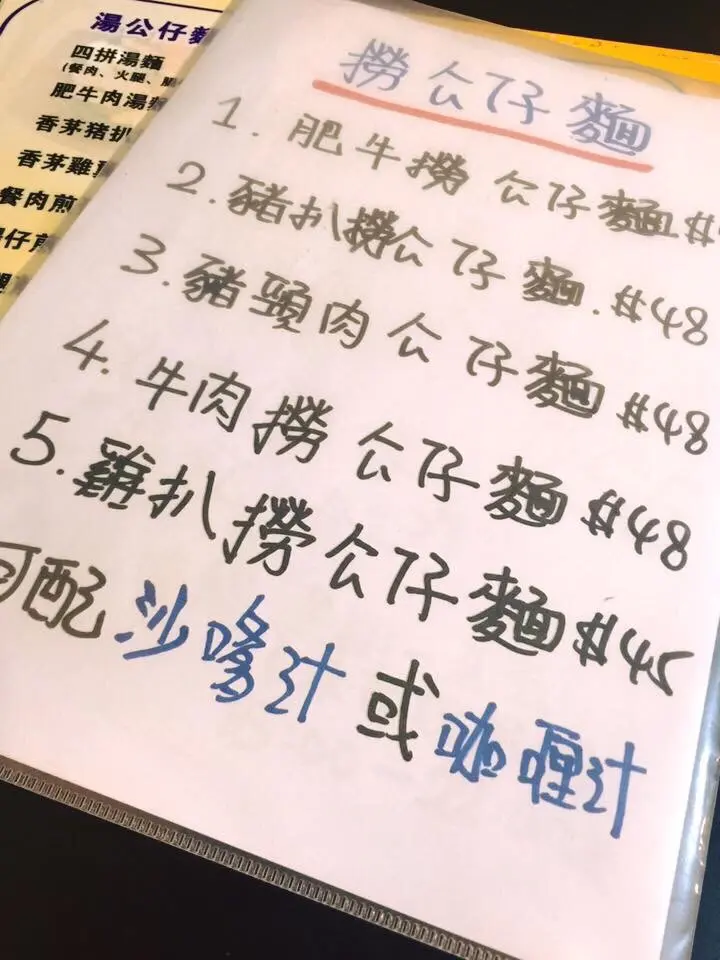 湯公仔
四拼湯麵
(餐肉、火腿、
肥牛肉湯
香茅猪扒
香茅雞
餐肉煎
仔煎
撈公仔麵
1. 肥牛撈公仔麵 $
2. 豬扒撈公仔麵. $48
3. 豬頸肉公仔麵 $48
4. 牛肉撈公仔麵 $48
5. 雞扒撈公仔麵 $45
可配 沙嗲汁 或 咖喱汁